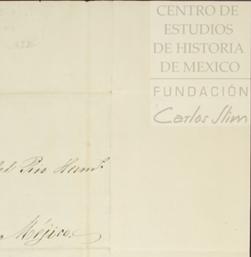 CENTRO DE
ESTUDIOS
DE HISTORIA
DE MEXICO
FUNDACIÓN
Carlos Slim
del Rio Herm.ˢ
Méjico